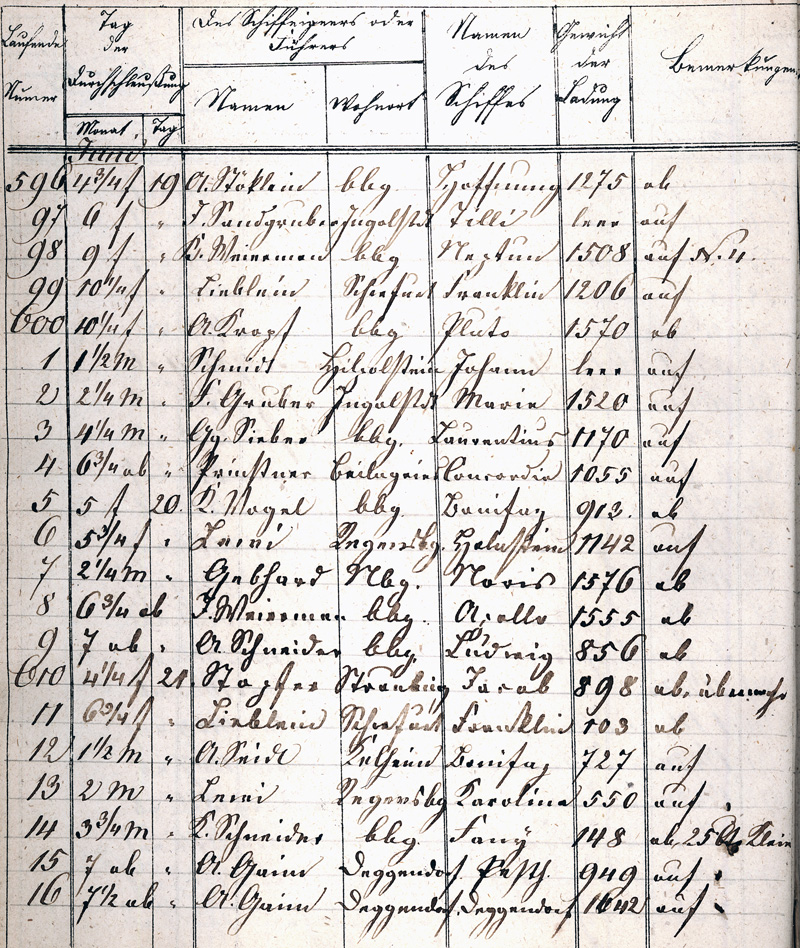 Laufende Numer
Tag der Durchschleußung
Monat, Tag
Des Schiffeigners oder Führers
Namen Wohnort
Namen des Schiffes
Gewicht der Ladung
Bemerkungen
Juni
596 4 3/4 f 19 A. Stöklein bbg. Hoffnung 1275 ab
97 6 f " J. Sandgruber Ingolstdt Tilli leer auf
98 9 f " K. Weierman bbg Neptun 1508 auf N. 4.
99 10 1/4 f " Lieblein Schwfurt Franklin 1206 auf
600 10 1/4 f " A. Kropf bbg Pluto 1570 ab
1 1 1/2 M " Schmidt Hilpolstein Johann leer auf
2 2 1/4 M " F. Gruber Ingolstdt Marie 1520 auf
3 4 1/4 M " Gg. Sieber bbg. Laurentius 1170 auf
4 6 3/4 ab " Prinstner Beilngries Concordia 1055 auf
5 5 f 20. K. Vogel bbg. Bonifaz 913. ab
6 5 3/4 f " Lewi Regensbg. Holnstein 1142 auf
7 2 1/4 M " Gebhard Nbg. Noris 1576 ab
8 6 3/4 ab J. Weierman bbg. Apollo 1555 ab
9 7 ab " A. Schneider bbg. Ludwig 856 ab
610 4 1/4 f 21. Stopfer Straubing Jacob 898 ab.
11 6 3/4 f " Lieblein Schwfurt Franklin 103 ab
12 1 1/2 M " A. Seidl Kelheim Bonifaz 727 auf
13 2 M " Lewi Regensbg Karolina 550 auf
14 3 3/4 M " K. Schneider bbg. Fany 148 ab, 25 Klein
15 7 ab " A. Gaim Deggendorf. Pesth. 949 auf
16 7 1/2 ab " A. Gaim Deggendorf. Deggendorf 1642 auf